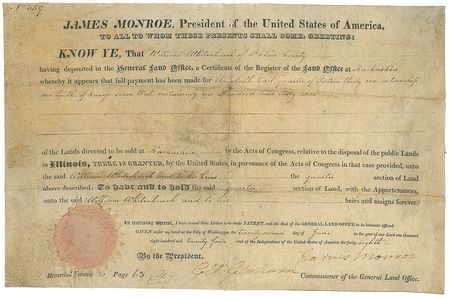 No. 359
JAMES MONROE, President of the United States of America,
TO ALL TO WHOM THESE PRESENTS SHALL COME, GREETING:
KNOW YE, That William Whiteside of County
having deposited in the General Land Office, a Certificate of the Register of the Land Office at Kaskaskia
whereby it appears that full payment has been made for the South East quarter of Section thirty six in township
one South of range seven West containing one Hundred and Sixty acres
of the Lands directed to be sold at Kaskaskia by the Acts of Congress, relative to the disposal of the public Lands
in Illinois, THERE IS GRANTED, by the United States, in pursuance of the Acts of Congress in that case provided, unto
the said William and to his heirs the quarter section of Land
above described: To have and to hold the said quarter section of Land, with the Appurtenances,
unto the said William and to his heirs and assigns forever.
In testimony whereof, I have caused these Letters to be made PATENT, and the Seal of the GENERAL LAND OFFICE to be hereunto affixed.
GIVEN under my hand at the City of Washington, the twenty second day of June in the year of our Lord one thousand
eight hundred and twenty four and of the Independence of the United States of America the forty eighth
By the President, James Monroe
Recorded Volume 6 Page 63 Geo. Graham Commissioner of the General Land Office.